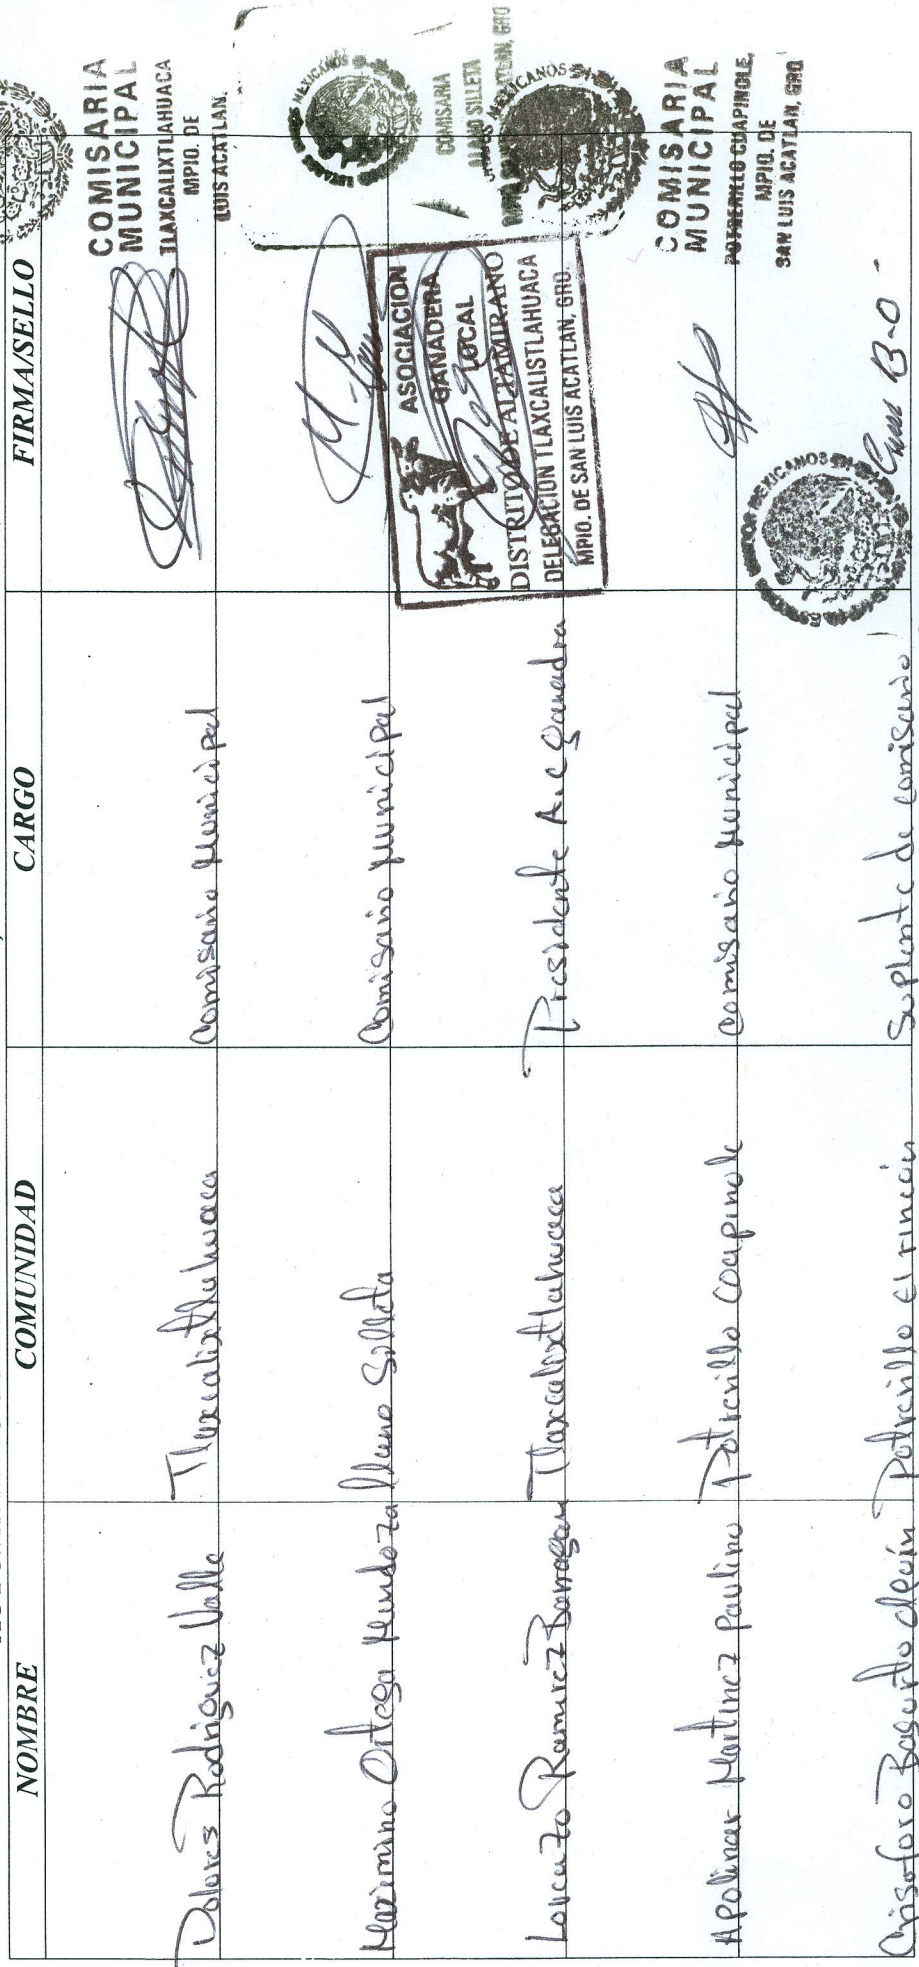 NOMBRE COMUNIDAD CARGO FIRMA/SELLO
Dolores Rodriguez Valle Tlaxcalixtlahuaca Comisario Municipal
COMISARIA
MUNICIPAL
TLAXCALIXTLAHUACA
MPIO. DE
LUIS ACATLAN,
Maximino Ortega Mendoza Llano Silleta Comisario Municipal
MEXICANOS
COMISARIA
LLANO SILLETA
ATLAN, GRO
Lorenzo Ramirez Barragan Tlaxcalixtlahuaca Presidente A. G ganadera
ASOCIACION
GANADERA
LOCAL
DISTRITO DE ALTAMIRANO
DELEGACION TLAXCALISTLAHUACA
MPIO. DE SAN LUIS ACATLAN, GRO.
MEXICANOS
Apolinar Martinez Paulino Potrerillo Coapinole comisario Municipal
COMISARIA
MUNICIPAL
POTRERILLO CUAPINOLE,
MPIO. DE
SAN LUIS ACATLAN, GRO
Crisoforo Basurto Potrerillo el rincón Suplente de comisario
MEXICANOS